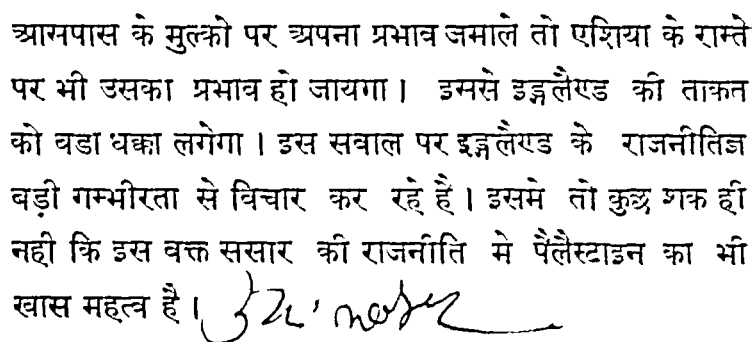 आसपास के मुल्को पर अपना प्रभाव जमाले तो एशिया के रास्ते
पर भी उसका प्रभाव हो जायगा। इससे इङ्गलैण्ड की ताकत
को बडा धक्का लगेगा। इस सवाल पर इङ्गलैण्ड के राजनीतिज्ञ
बड़ी गम्भीरता से विचार कर रहे है। इसमे तो कुछ शक ही
नही कि इस वक्त ससार की राजनीति मे पैलैस्टाइन का भी
खास महत्व है।